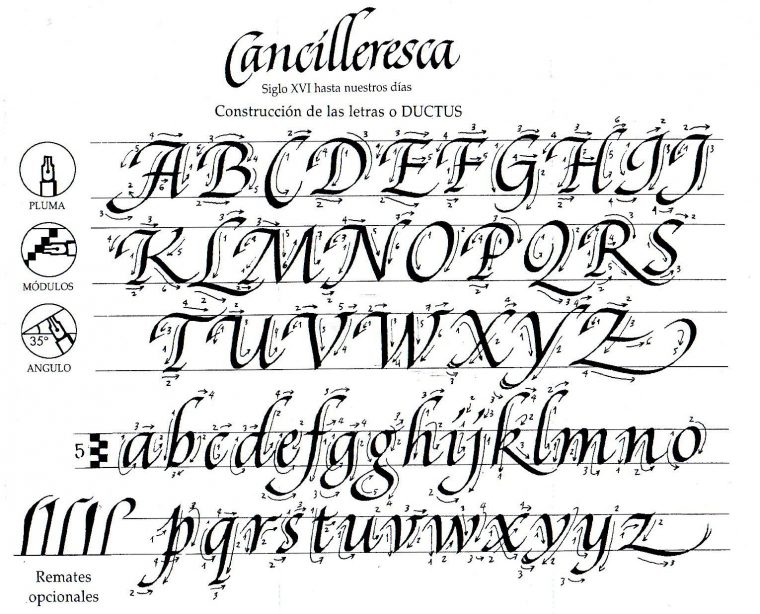 Cancilleresca
Siglo XVI hasta nuestros días
Construcción de las letras o DUCTUS
PLUMA
A B C D E F G H I J
MÓDULOS
K L M N O P Q R S
35°
ANGULO
T U V W X Y Z
5
a b c d e f g g h i j k l m n o
p q r s t u v w x y y z
Remates
opcionales